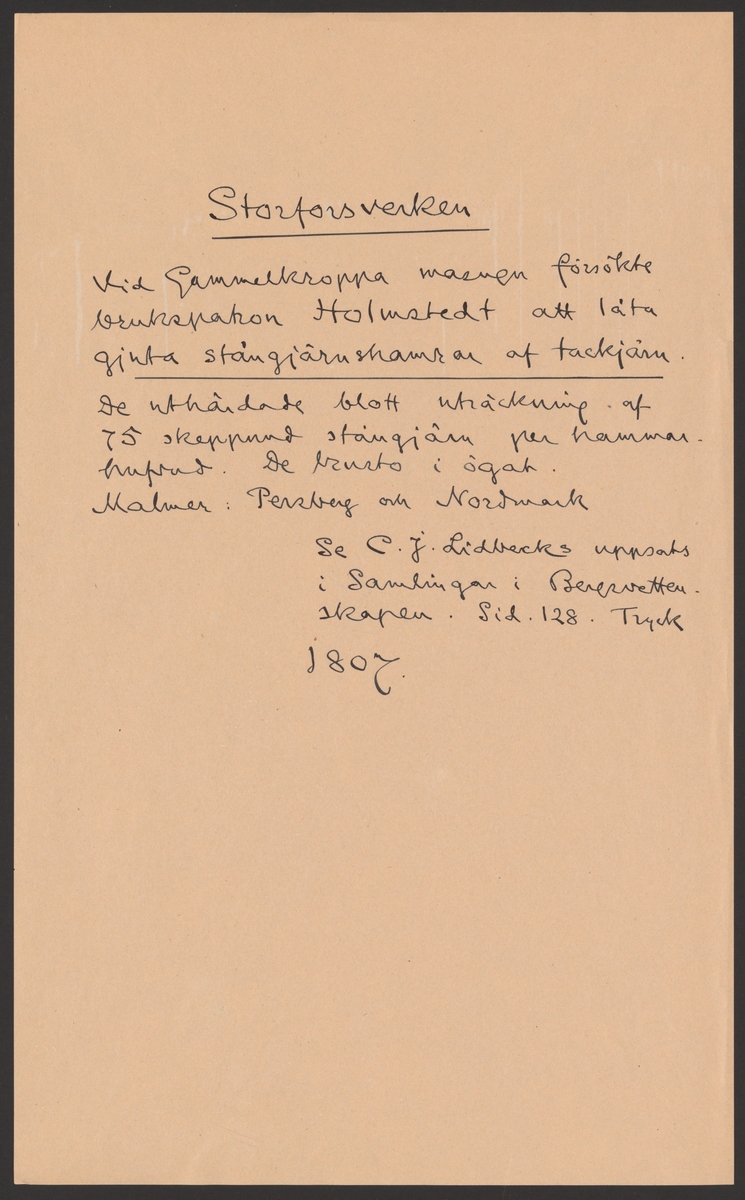 Storforsverken
Vid Gammelkroppa masugn försökte
brukspatron Holmstedt att låta
gjuta stångjärnshamrar af tackjärn.
De uthärdade blott uträckning af
75 skeppund stångjärn per hammar-
hufvud. De brusto i ögat.
Malmer: Persberg och Nordmark
Se C. J. Lidbecks uppsats
i Samlingar i Bergsvetten-
skapen. Sid. 128. Tryck
1807.